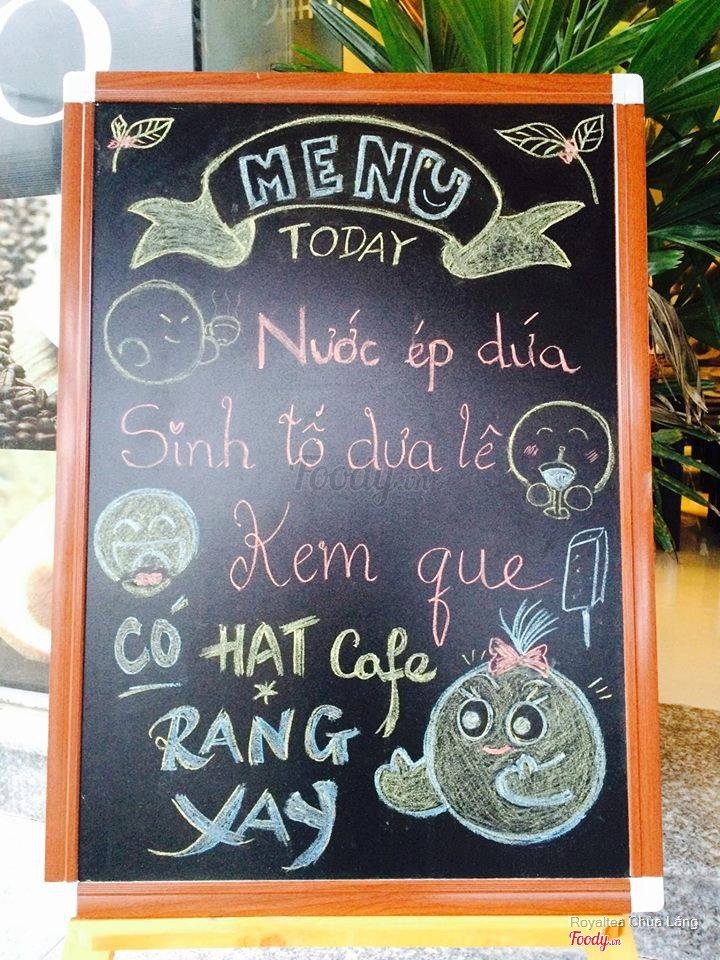 MENU
TODAY
Nước ép dứa
Sinh tố dưa lê
Foody.vn
Kem que
CÓ HẠT Cafe
RANG
XAY
Royaltea Chùa Láng
Foody.vn